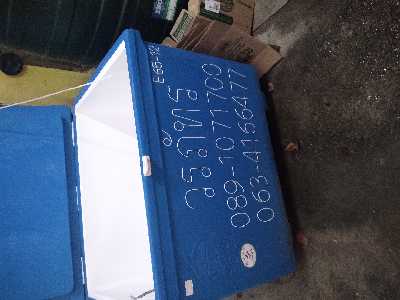 E65-12
วรภัทร
089-1071700
063-4166477